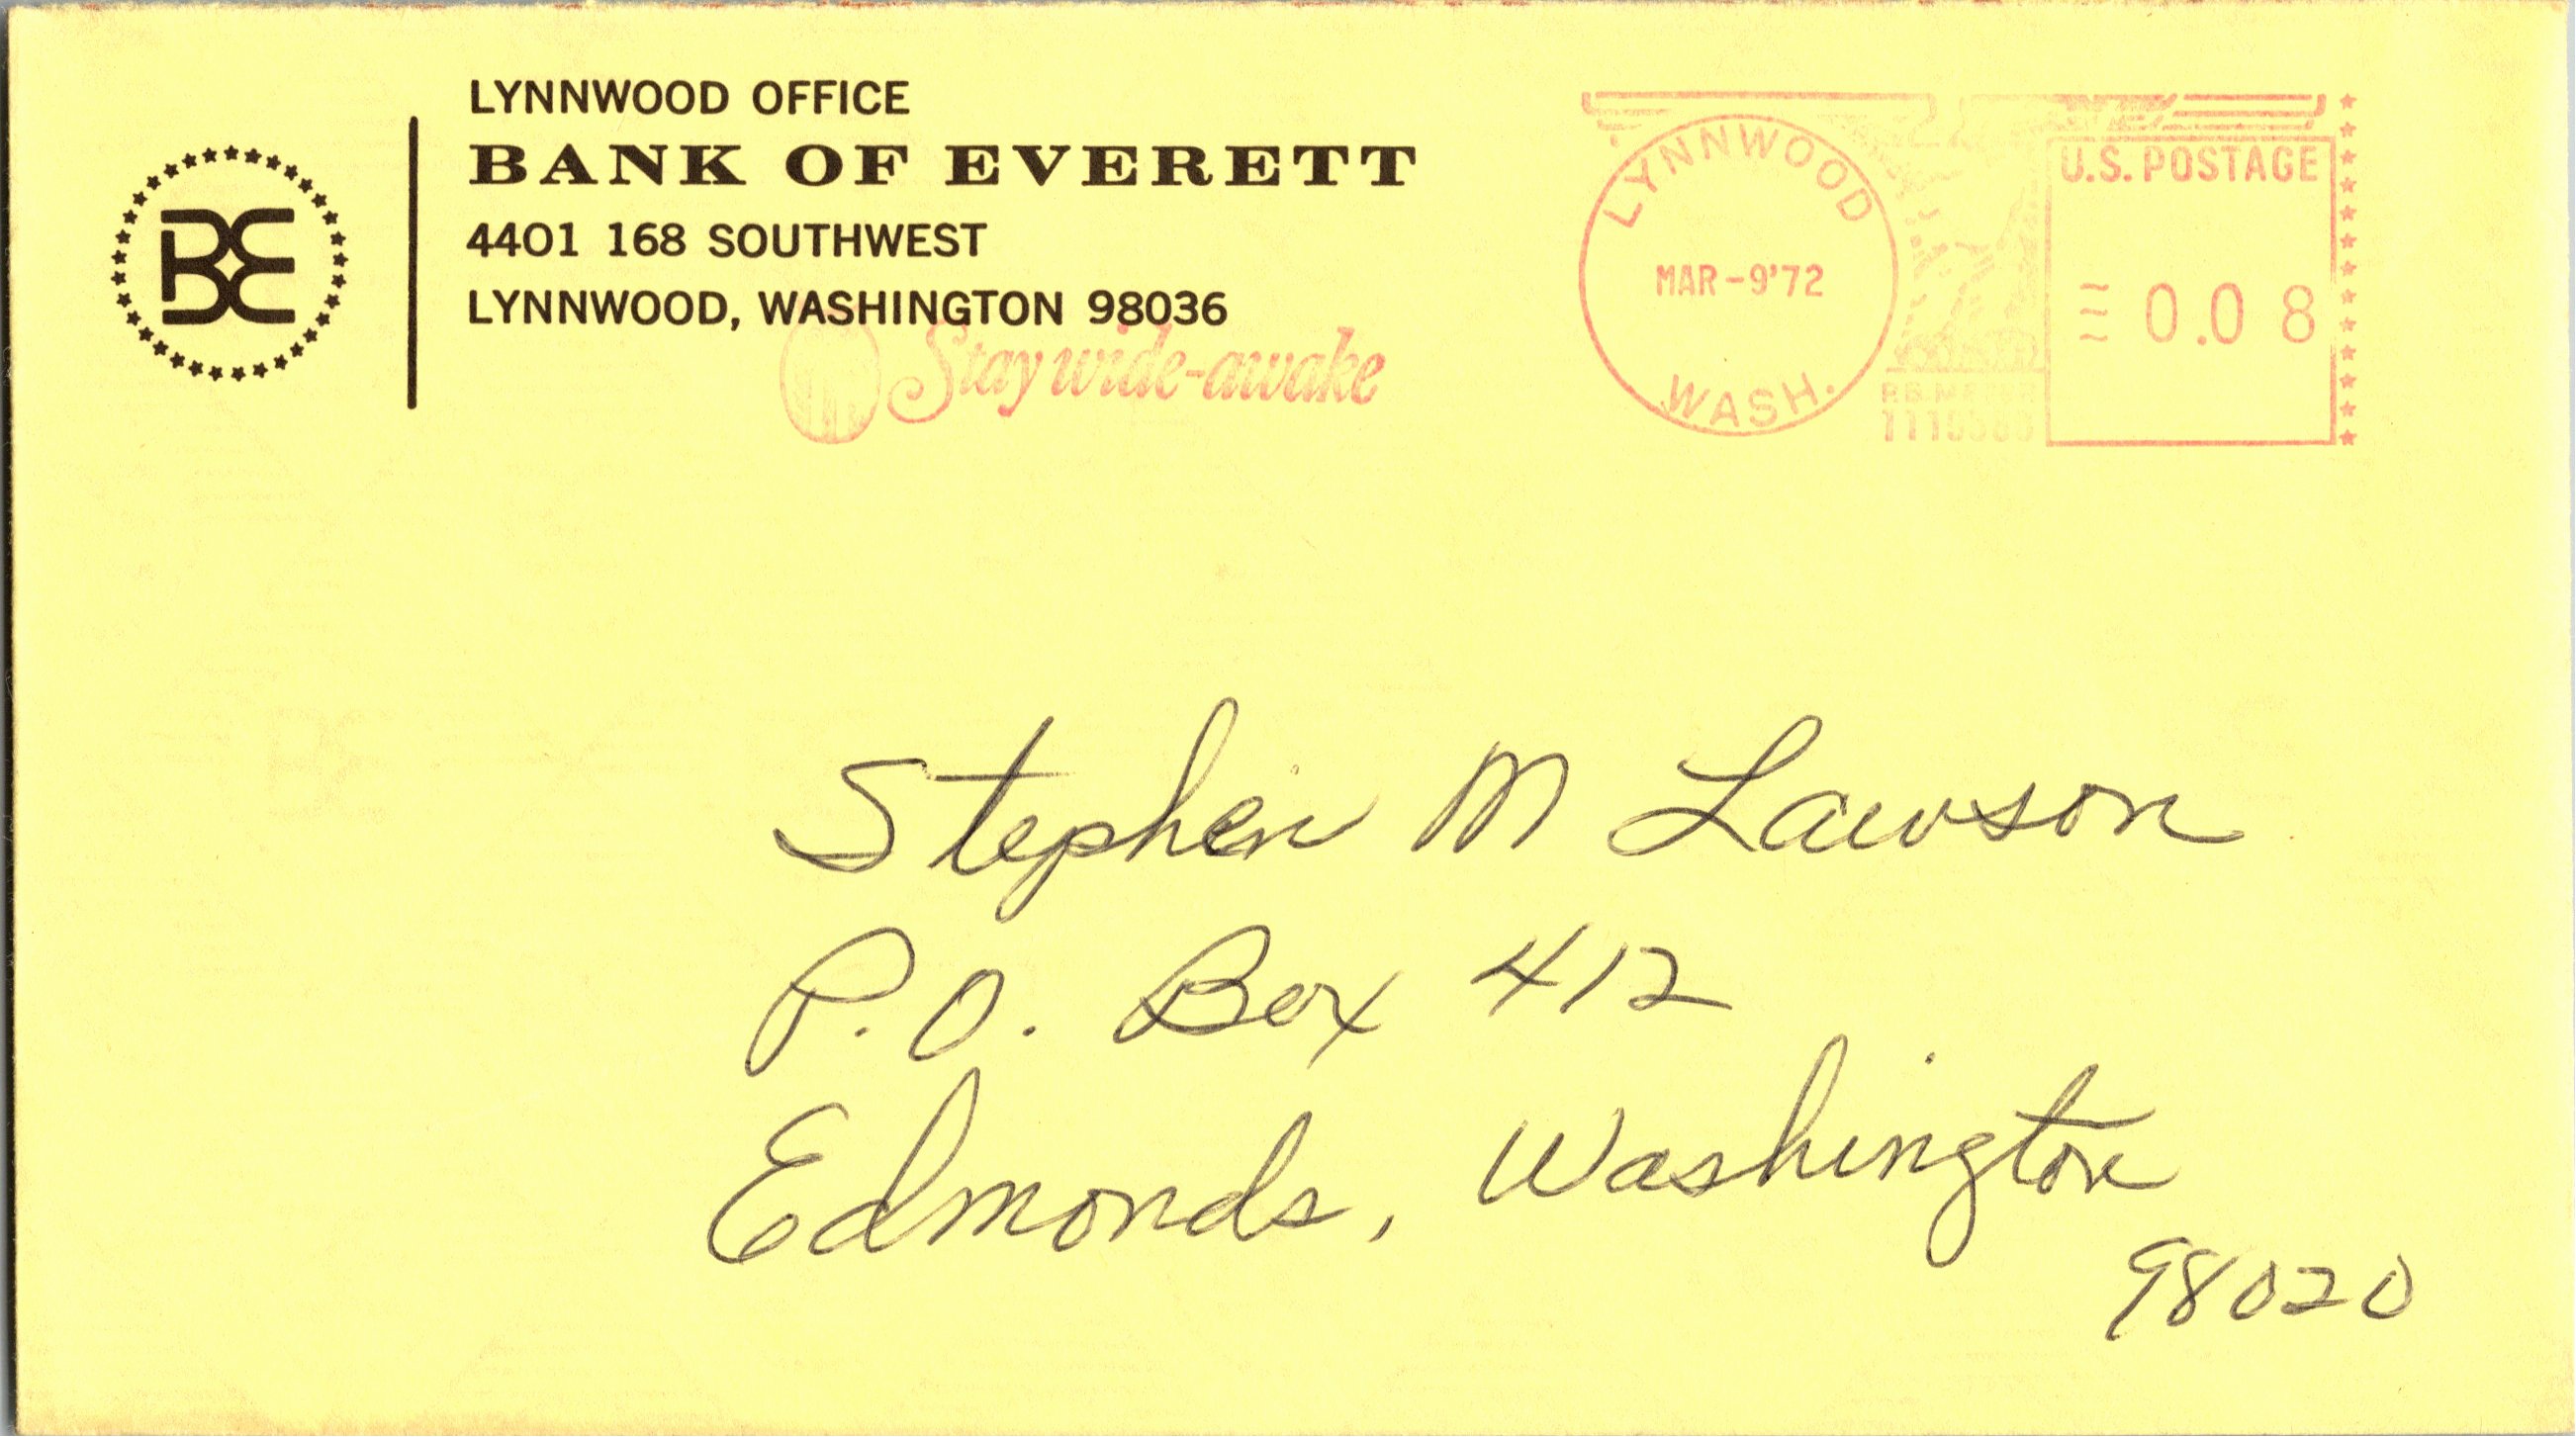 LYNNWOOD OFFICE
BANK OF EVERETT
4401 168 SOUTHWEST
LYNNWOOD, WASHINGTON 98036
BE
Stay wide-awake
LYNNWOOD
MAR-9'72
WASH.
U.S. POSTAGE
0.08
P.B. METER
Stephen M Lawson
P.O. Box 412
Edmonds, Washington
98020